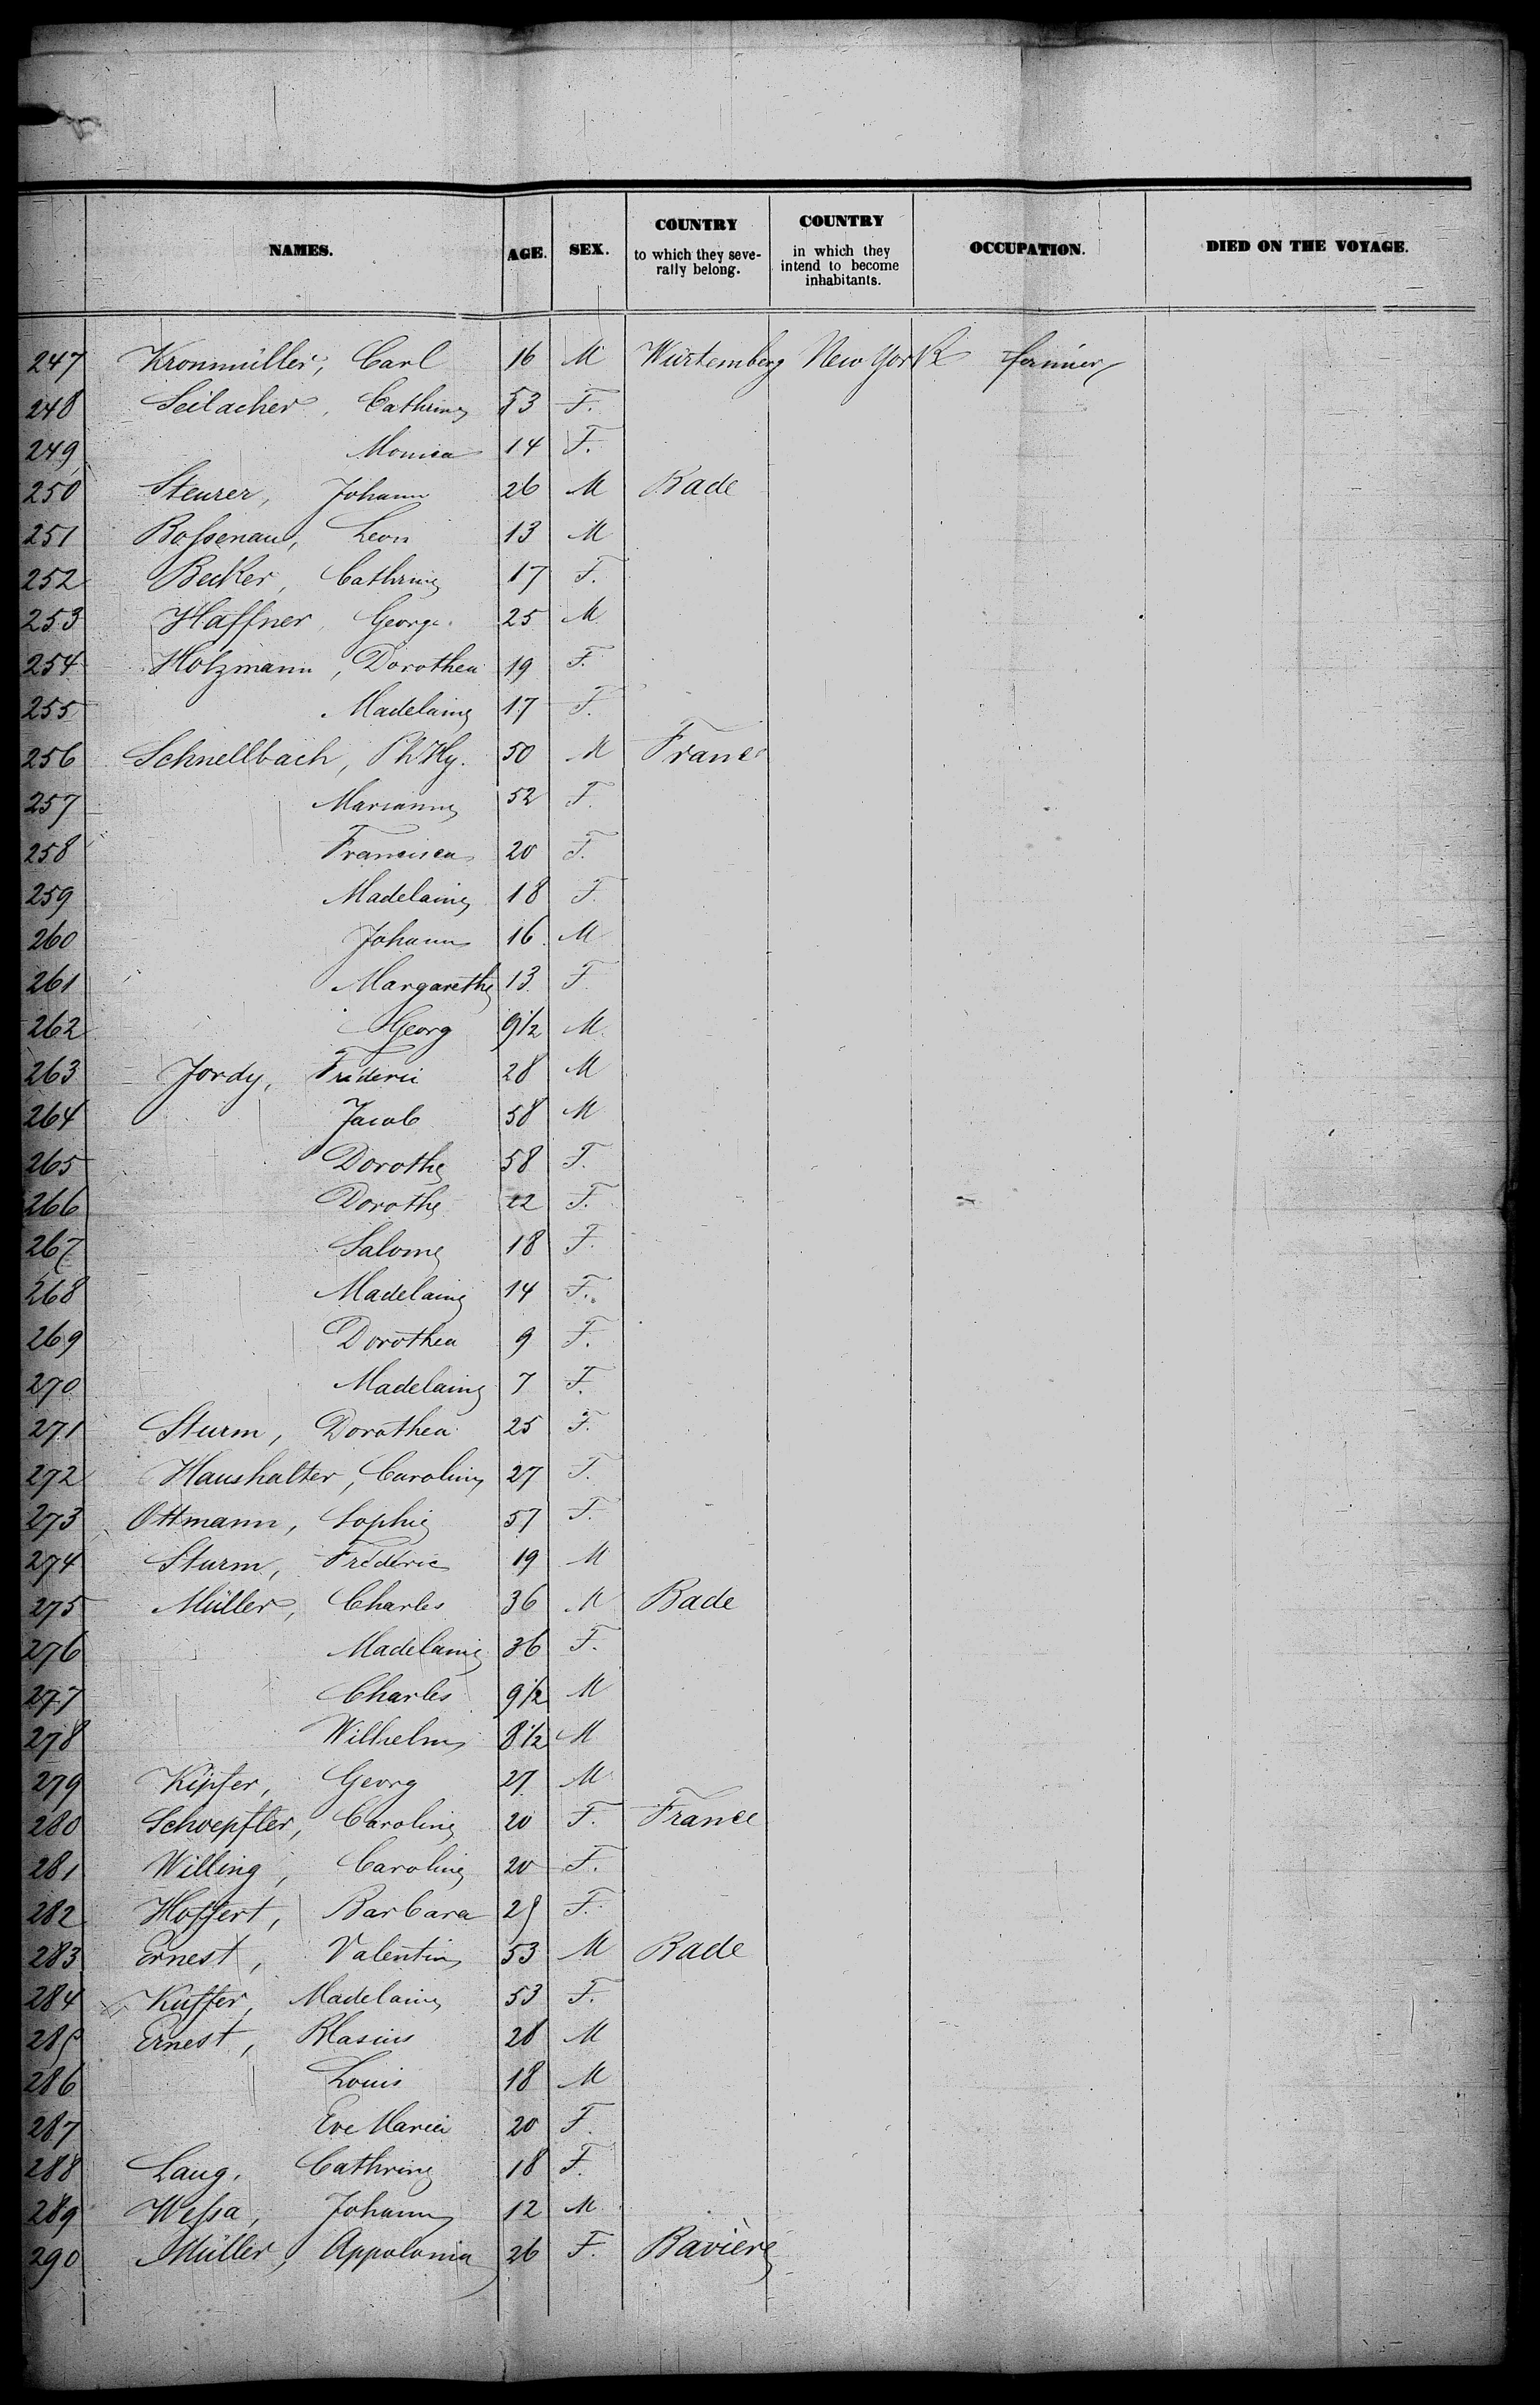 NAMES. AGE. SEX. COUNTRY to which they severally belong. COUNTRY in which they intend to become inhabitants. OCCUPATION. DIED ON THE VOYAGE.
247 Kronmüller, Carl 16 M Würtemberg New York farmer
248 Seilacher, Cathrine 53 F.
249 Monica 14 F.
250 Steurer, Johann 26 M Bade
251 Bossenau, Leon 13 M
252 Becker, Cathrine 17 F.
253 Haffner, George 25 M
254 Holzmann, Dorothea 19 F.
255 Madelaine 17 F.
256 Schnellbach, Ph. Hy. 50 M France
257 Marianne 52 F.
258 Francisca 20 F.
259 Madelaine 18 F.
260 Johann 16 M
261 Margarethe 13 F
262 Georg 9 1/2 M
263 Jordy, Frederic 28 M
264 Jacob 58 M
265 Dorothe 58 F.
266 Dorothe 22 F.
267 Salome 18 F.
268 Madelaine 14 F.
269 Dorothea 9 F.
270 Madelaine 7 F.
271 Sturm, Dorothea 25 F.
272 Haushalter, Caroline 27 F.
273 Ottmann, Sophie 57 F.
274 Sturm, Fréderic 19 M
275 Müller, Charles 36 M Bade
276 Madelaine 36 F.
277 Charles 9 1/2 M
278 Wilhelm 8 1/2 M
279 Kipfer, Georg 27 M
280 Schoepfler, Caroline 20 F. France
281 Willing, Caroline 20 F.
282 Hoffert, Barbara 25 F.
283 Ernest, Valentin 53 M Bade
284 Kuffer, Madelaine 53 F.
285 Ernest, Blasius 28 M
286 Louis 18 M
287 Eve Maria 20 F.
288 Laug, Cathrine 18 F.
289 Wessa, Johann 12 M
290 Müller, Appolonia 26 F. Bavière